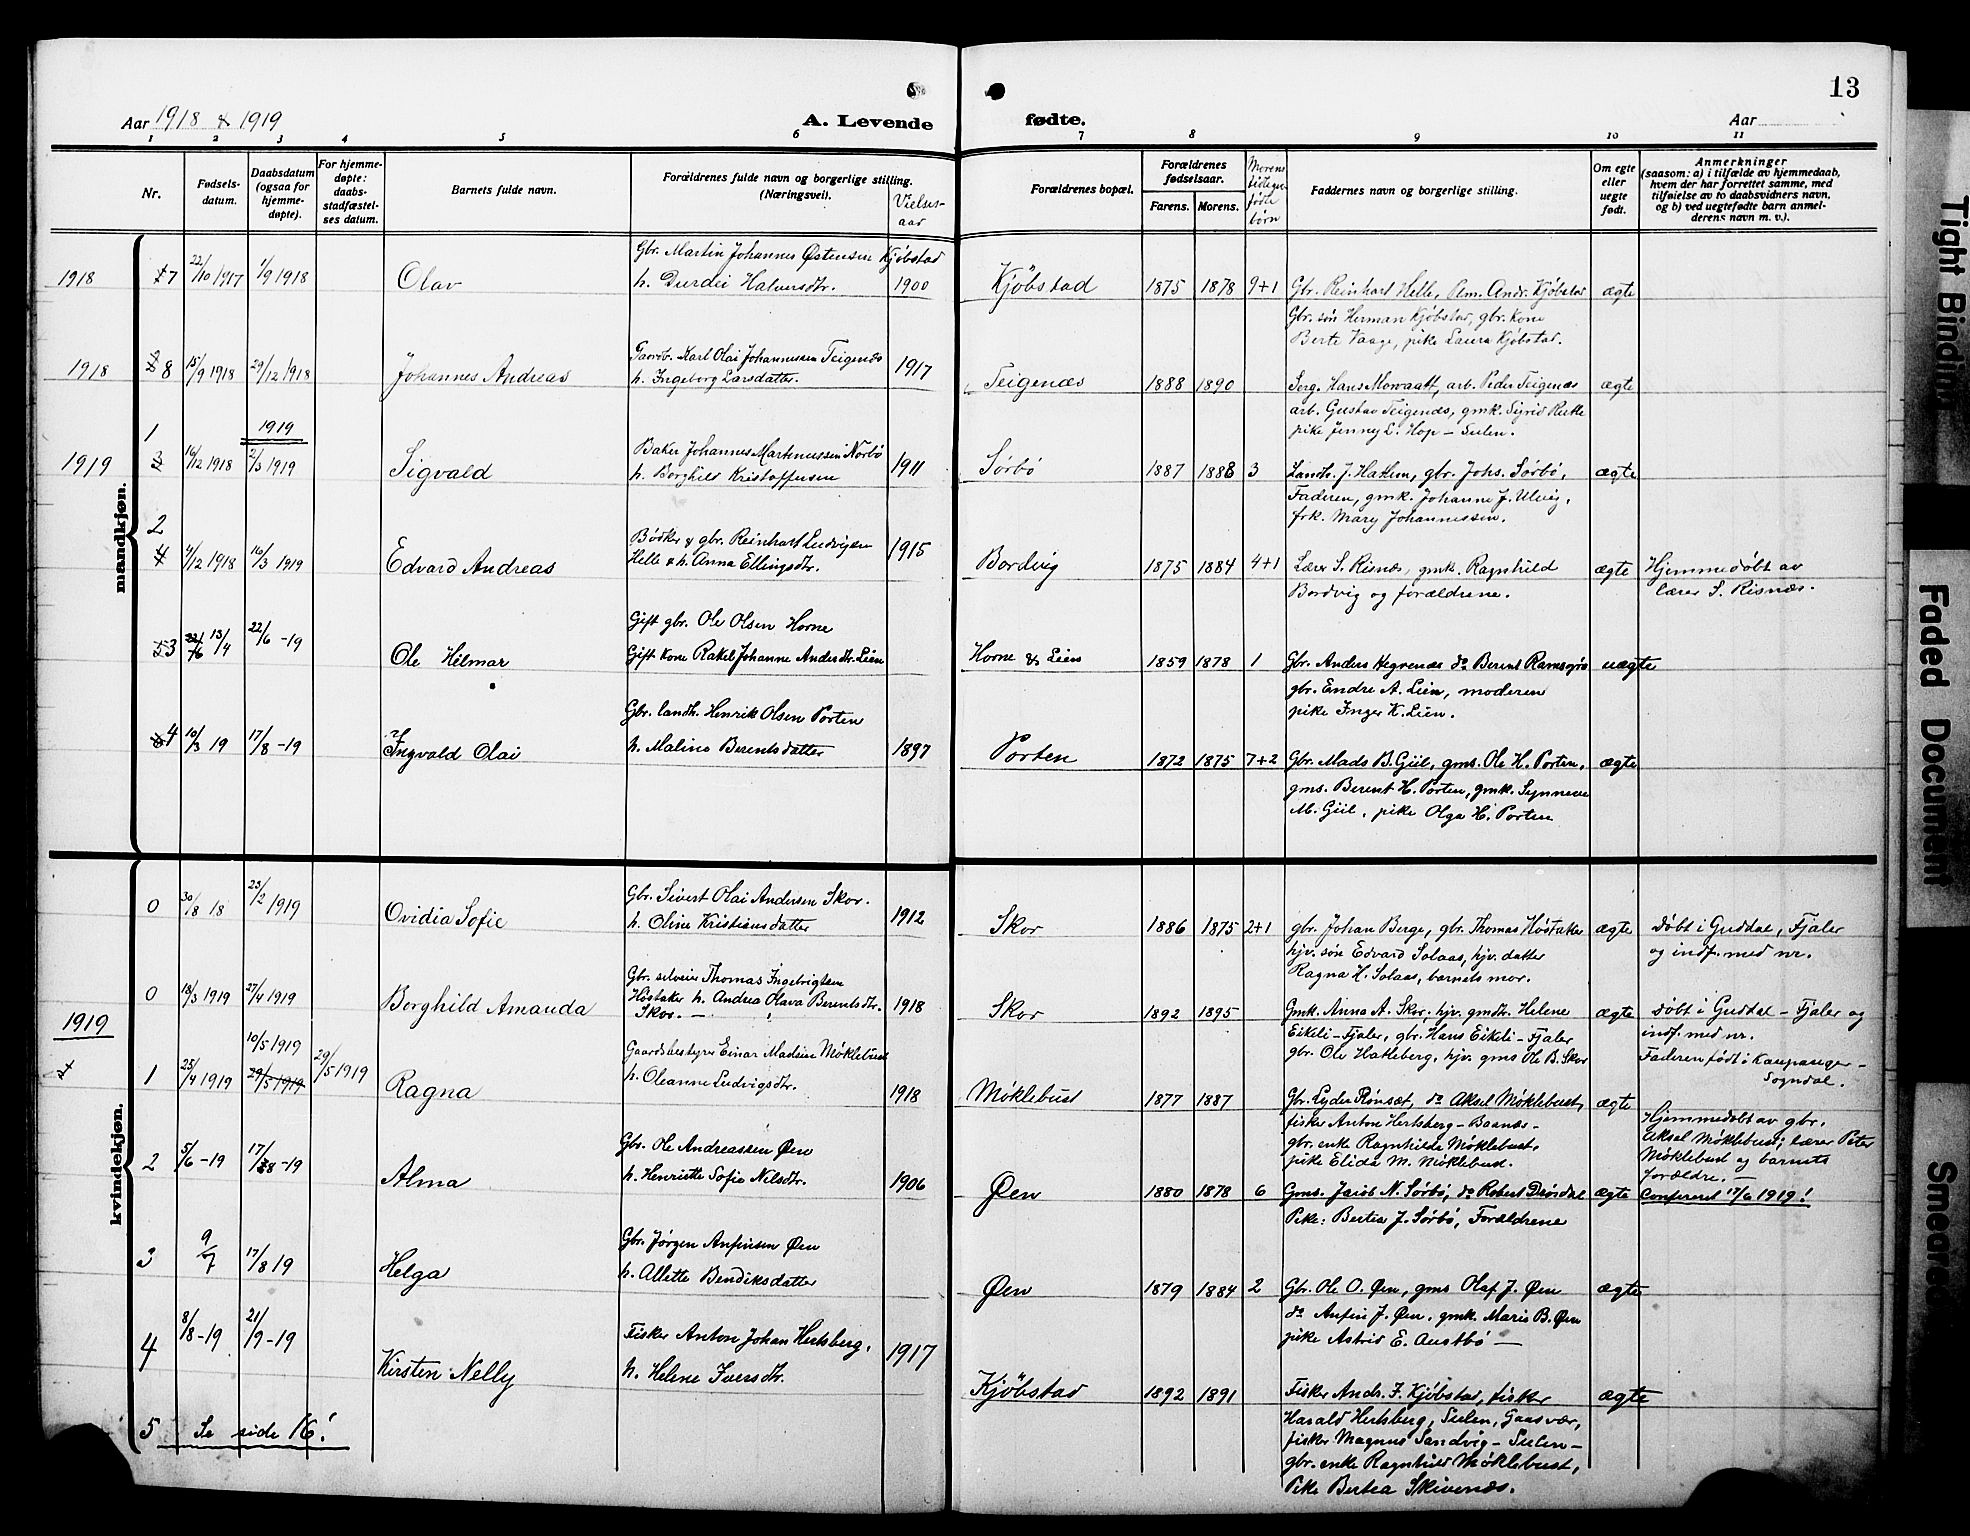 13
Aar 1918 & 1919
A. Levende fødte.
Aar
1 2 3 4 5 6 7 8 9 10 11
Nr.
Fødsels-
datum.
Daabsdatum
(ogsaa for
hjemme-
døpte).
For hjemme-
døpte:
daabs-
stadfæstel-
ses datum.
Barnets fulde navn.
Forældrenes fulde navn og borgerlige stilling.
(Næringsvei).
Vielses-
aar
Forældrenes bopæl.
Forældrenes
fødselsaar.
Farens. Morens.
Morens
tidligere
fødte
børn
Faddernes navn og borgerlige stilling.
Om egte
eller
uegte
født.
Anmerkninger
(saasom: a) i tilfælde av hjemmedaab,
hvem der har forrettet samme, med
tilføielse av to daabsvidners navn,
og b) ved uegtefødte barn anmel-
derens navn m. v.).
mandkjøn.
1918 7 22/10 1917 1/9 1918 Olav
Gbr. Martin Johannes Østensen Kjøbstad
h. Durdei Halvorsdtr. 1900
Kjøbstad 1875 1878 9+1 Gbr. Reinhart Helle, Pem. Andr. Kjøbstad ægte
Gbr. søn Herman Kjøbstad, gbr. kone
Berte Vaage, pike Laura Kjøbstad.
1918 8 15/9 1918 29/12 1918 Johannes Andreas
Gaardb. Karl Olai Johannessen Teigenæs
h. Ingeborg Larsdatter. 1917
Teigenæs 1888 1890 Serg. Hans Morvaatt, arb. Peder Teigenæs ægte
arb. Gustav Teigenæs, gmk. Sigrid Rutle
pike Jenny L. Hop – Sulen.
1919
1919 1 3 16/12 1918 2/3 1919 Sigvald
Baker Johannes Martinussen Norbø
h. Borghild Kristoffersen 1911
Sørbø 1887 1888 3 Landh. J. Hatlem, gbr. Johs. Sørbø, ægte
Faderen, gmk. Johanne J. Ulvig,
frk. Mary Johannessen.
2 4 4/12 1918 16/3 1919 Edvard Andreas
Bødker & gbr. Reinhart Ludvigsen
Helle & h. Anna Ellingsdtr. 1915
Bordvig 1875 1884 4+1 Lærer S. Risnæs, gmk. Ragnhild ægte
Bordvig og forældrene.
Hjemmedøbt av
lærer S. Risnæs.
5 3 22/6 13/4 22/6 -19 Ole Hilmar
Gift gbr. Ole Olsen Horne
Gift kone Rakel Johanne Andersdtr. Lien
Horne & Lien 1859 1878 1 Gbr. Anders Hegrenæs do Berent Ramsgrø uægte
gbr. Endre A. Lien, moderen
pike Inger K. Lien.
6 4 10/3 19 17/8 -19 Ingvald Olai
Gbr. landh. Henrik Olsen Porten
h. Malino Berentsdatter 1897
Porten 1872 1875 7+2 Gbr. Mads B. Giil, gms. Ole H. Porten, ægte
gms. Berent H. Porten, gmk. Synneve
M. Giil, pike Olga H. Porten
kvindekjøn.
0 30/8 18 23/2 1919 Ovidia Sofie
Gbr. Sivert Olai Andersen Skor.
h. Oline Kristiansdatter 1912
Skor 1886 1875 2+1 gbr. Johan Berge, gbr. Thomas Høstaker ægte
hjv. søn Edvard Solaas, hjv. datter
Ragna H. Solaas, barnets mor.
Døbt i Guddal, Fjaler
og indf. med nr.
0 18/3 1919 27/4 1919 Borghild Amanda
Gbr. selveier Thomas Ingebrigtsen
Høstaker h. Andrea Olava Berentsdtr.
Skor. – 1918
Skor 1892 1895 Gmk. Anna A. Skor, hjv. gmdtr. Helene ægte
Eikeli – Fjaler, gbr. Hans Eikeli – Fjaler
gbr. Ole Hatleberg, hjv. gms Ole B. Skor
Døbt i Guddal – Fjaler og
indf. med nr.
Faderen født i Kaupanger –
Sogndal.
1919
1 25/4 1919 10/5 1919 29/5 1919 29/5 1919 Ragna
Gaardsbestyrer Einar Madsen Møklebust
h. Oleanne Ludvigsdtr. 1918
Møklebust 1877 1887 Gbr. Lyder Rønsæt, do Aksel Møklebust, ægte
fisker Anton Hertsberg – Baanæs –
gbr. enke Ragnhilda Møklebust,
pike Elida M. Møklebust.
Hjemmedøbt av gbr.
Aksel Møklebust; lærer Peter
Møklebust og barnets
forældre. –
Confereret 17/6 1919!
2 5/6 -19 17/8 -19 Alma
Gbr. Ole Andreassen Øen
h. Henriette Sofie Nilsdtr. 1906
Øen 1880 1878 6 Gms. Jacob N. Sørbø, do Robert Drøsdal ægte
Pike: Bertea J. Sørbø, Forældrene
3 9/7 17/8 19 Helga
Gbr. Jørgen Anfinsen Øen
h. Allette Bendiksdatter
Øen 1879 1884 2 Gbr. Ole O. Øen, gms Olaf J. Øen ægte
do Anfin J. Øen, gmk. Maris B. Øen
pike Astrid E. Austbø –
4 8/8 -19 21/9 -19 Kirsten Nelly
Fisker Anton Johan Hertsberg,
h. Helene Iversdtr. 1917
Kjøbstad 1892 1891 Fisker Andr. F. Kjøbstad, fisker ægte
Harald Hertsberg, Sulen, Gaasvær,
fisker Magnus Sandvig – Sulen –
gbr. enke Ragnhild Møklebust,
Pike Bertea Skivenæs.
5 Se side 16!
Tight Binding
Faded Document
Smeared